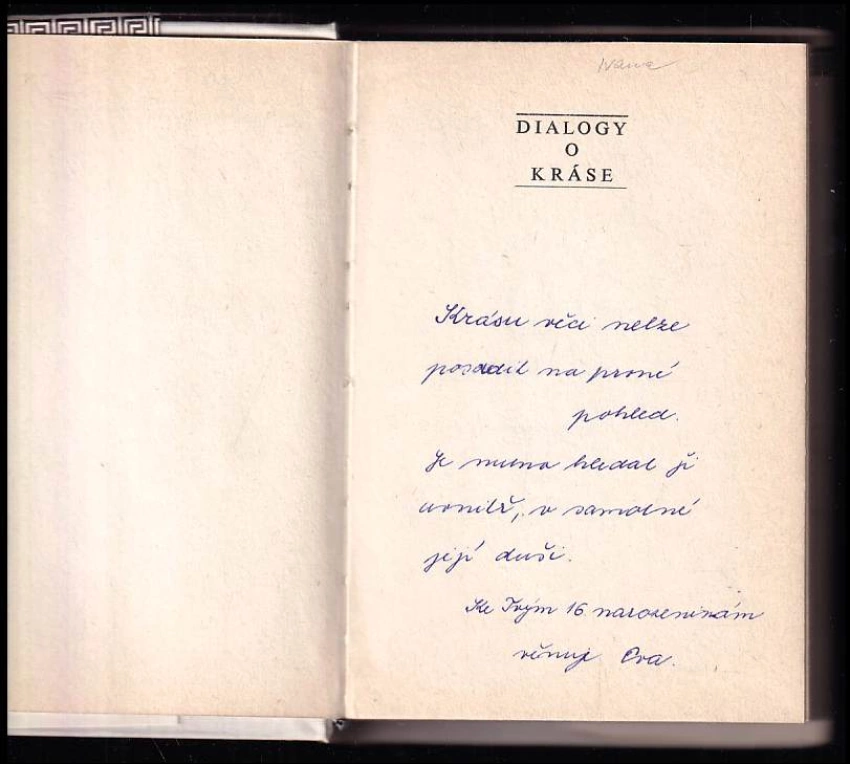 Ivana
DIALOGY
O
KRÁSE
Krásu věci nelze
posoudit na první
pohled.
Je nutno hledat ji
uvnitř, v samotné
její duši.
Ke Tvým 16 narozeninám
věnuje Eva.